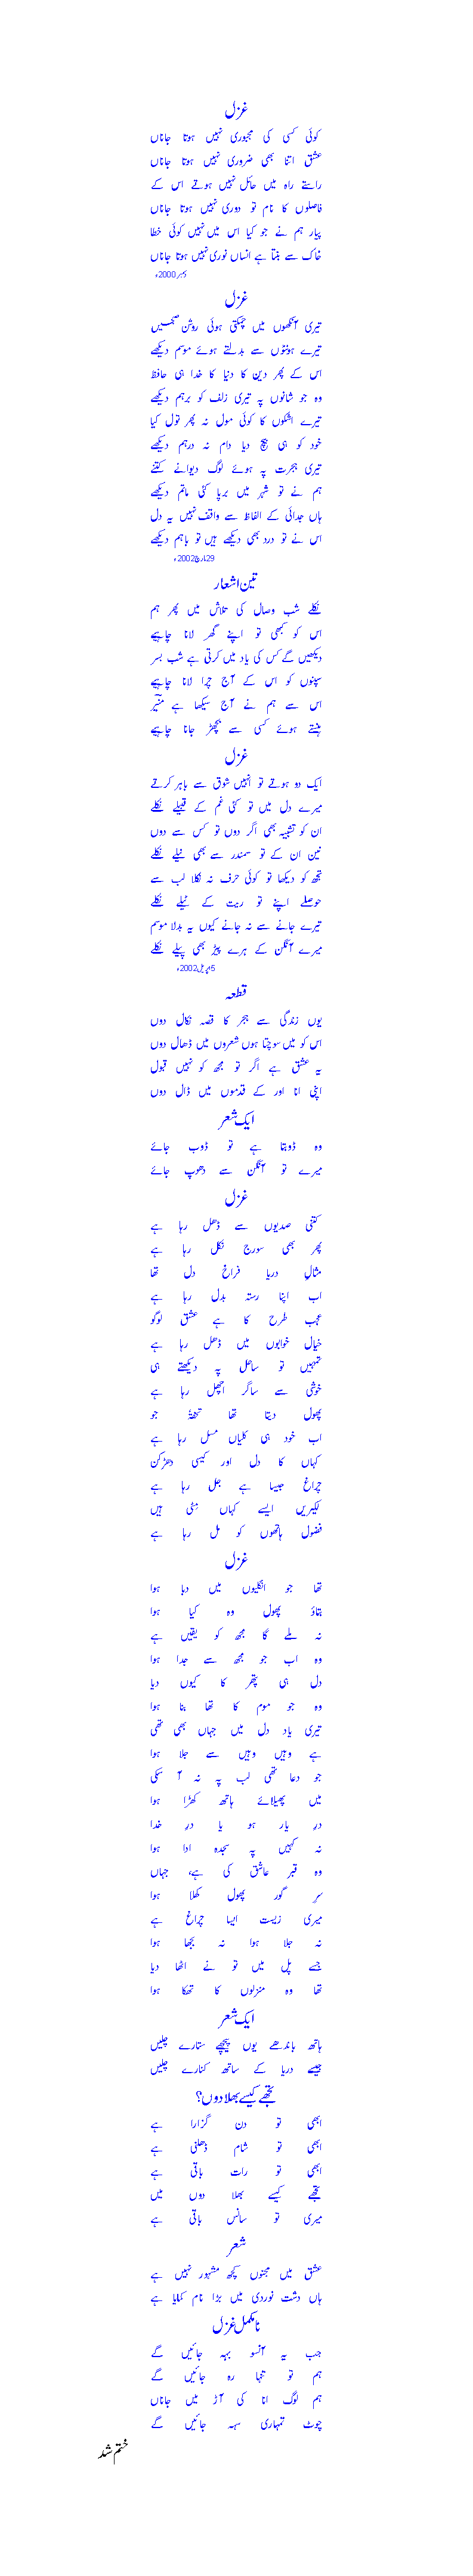 غزل
کوئی کسی کی مجبوری نہیں ہوتا جاناں
عشق اتنا بھی ضروری نہیں ہوتا جاناں
راستے راہ میں حائل نہیں ہوتے اس کے
فاصلوں کا نام تو دوری نہیں ہوتا جاناں
پیار ہم نے جو کیا اس میں نہیں کوئی خطا
خاک سے بنتا ہے انساں نوری نہیں ہوتا جاناں
دسمبر2000ء
غزل
تیری آنکھوں میں چمکتی ہوئی روشن صبحیں
تیرے ہونٹوں سے بدلتے ہوئے موسم دیکھے
اس کے پھر دین کا دنیا کا خدا ہی حافظ
وہ جو شانوں پہ تیری زلف کو برہم دیکھے
تیرے اشکوں کا کوئی مول نہ پھر تول کیا
خود کو ہی بیچ دیا دام نہ درہم دیکھے
تیری ہجرت پہ ہوئے لوگ دیوانے کتنے
ہم نے تو شہر میں برپا کئی ماتم دیکھے
ہاں جدائی کے الفاظ سے واقف نہیں یہ دل
اس نے تو درد بھی دیکھے ہیں تو باہم دیکھے
29مارچ2002ء
تین اشعار
نکلے شب وصال کی تلاش میں پھر ہم
اس کو کبھی تو اپنے گھر لانا چاہیے
دیکھیں گے کس کی یاد میں کرتی ہے شب بسر
سپنوں کو اس کے آج چرا لانا چاہیے
اس سے ہم نے آج سیکھا ہے منیر
ہنستے ہوئے کسی سے بچھڑ جانا چاہیے
غزل
ایک دو ہوتے تو انہیں شوق سے باہر کرتے
میرے دل میں تو کئی غم کے قبیلے نکلے
ان کو تشبیہ بھی اگر دوں تو کس سے دوں
نین ان کے تو سمندر سے بھی نیلے نکلے
تجھ کو دیکھا تو کوئی حرف نہ نکلا لب سے
حوصلے اپنے تو ریت کے ٹیلے نکلے
تیرے جانے سے نہ جانے کیوں یہ بدلا موسم
میرے آنگن کے ہرے پیڑ بھی پیلے نکلے
5اپریل2002ء
قطعہ
یوں زندگی سے ہجر کا قصہ نکال دوں
اس کو میں سوچتا ہوں شعروں میں ڈھال دوں
یہ عشق ہے اگر تو مجھ کو نہیں قبول
اپنی انا اور کے قدموں میں ڈال دوں
ایک شعر
وہ ڈوبتا ہے تو ڈوب جائے
میرے تو آنگن سے دھوپ جائے
غزل
کتنی صدیوں سے ڈھل رہا ہے
پھر بھی سورج نکل رہا ہے
مثال دریا فراخ دل تھا
اب اپنا رستہ بدل رہا ہے
عجب طرح کا ہے عشق لوگو
خیال خوابوں میں ڈھل رہا ہے
تمہیں تو ساحل پہ دیکھتے ہی
خوشی سے ساگر اچھل رہا ہے
پھول دیتا تھا تحفتہً جو
اب خود ہی کلیاں مسل رہا ہے
کہاں کا دل اور کیسی دھڑکن
چراغ جیسا ہے جل رہا ہے
لکیریں ایسے کہاں مٹی ہیں
فضول ہاتھوں کو مل رہا ہے
غزل
تھا جو انگلیوں میں دبا ہوا
بتاؤ پھول وہ کیا ہوا
نہ ملے گا مجھ کو یقیں ہے
وہ اب جو مجھ سے جدا ہوا
دل ہی پتھر کا کیوں دیا
وہ جو موم کا تھا بنا ہوا
تیری یاد دل میں جہاں بھی تھی
ہے وہیں وہیں سے جلا ہوا
جو دعا تھی لب پہ نہ آ سکی
میں پھیلائے ہاتھ کھڑا ہوا
در یار ہو یا در خدا
نہ کہیں پہ سجدہ ادا ہوا
وہ قبر عاشق کی ہے، جہاں
سر گور پھول کھلا ہوا
میری زیست ایسا چراغ ہے
نہ جلا ہوا نہ بجھا ہوا
جسے پل میں تو نے اٹھا دیا
تھا وہ منزلوں کا تھکا ہوا
ایک شعر
ہاتھ باندھے یوں پیچھے ستارے چلیں
جیسے دریا کے ساتھ کنارے چلیں
تجھے کیسے بھلا دوں؟
ابھی تو دن گزارا ہے
ابھی تو شام ڈھلنی ہے
ابھی تو رات باقی ہے
تجھے کیسے بھلا دوں میں
میری تو سانس باقی ہے
شعر
عشق میں مجنوں کچھ مشہور نہیں ہے
ہاں دشت نوردی میں بڑا نام کمایا ہے
نا مکمل غزل
جب یہ آنسو بہہ جائیں گے
ہم تو تنہا رہ جائیں گے
ہم لوگ انا کی آڑ میں جاناں
چوٹ تمہاری سہہ جائیں گے
ختم شد